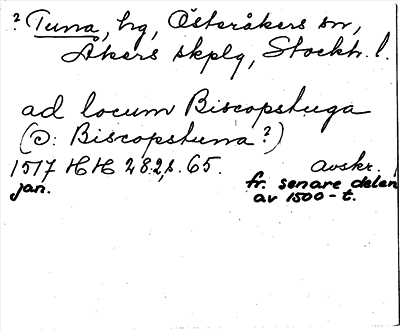 ? Tuna, hg, Österåkers sn,
Åkers skplg, Stockh. l.
ad locum Biscopstuga
(ɔ: Biscopstuna?)
1517 HH 28:2, s. 65. Avskr.
jan. fr. senare delen
av 1500-t.